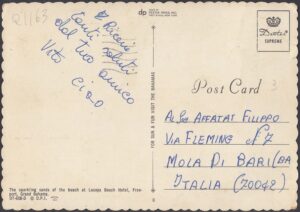 21163
dp
Ricevi
tanti saluti
dal tuo amico
Vito
ciao
The sparkling sands of the beach at Lucaya Beach Hotel, Free-
port, Grand Bahama.
FOR SUN & FUN VISIT THE BAHAMAS
Dexter
SUPREME
Post Card
3
Al Sig. AFFATATI FILIPPO
VIA FLEMING N° 7
MOLA DI BARI (BA
ITALIA (70042)